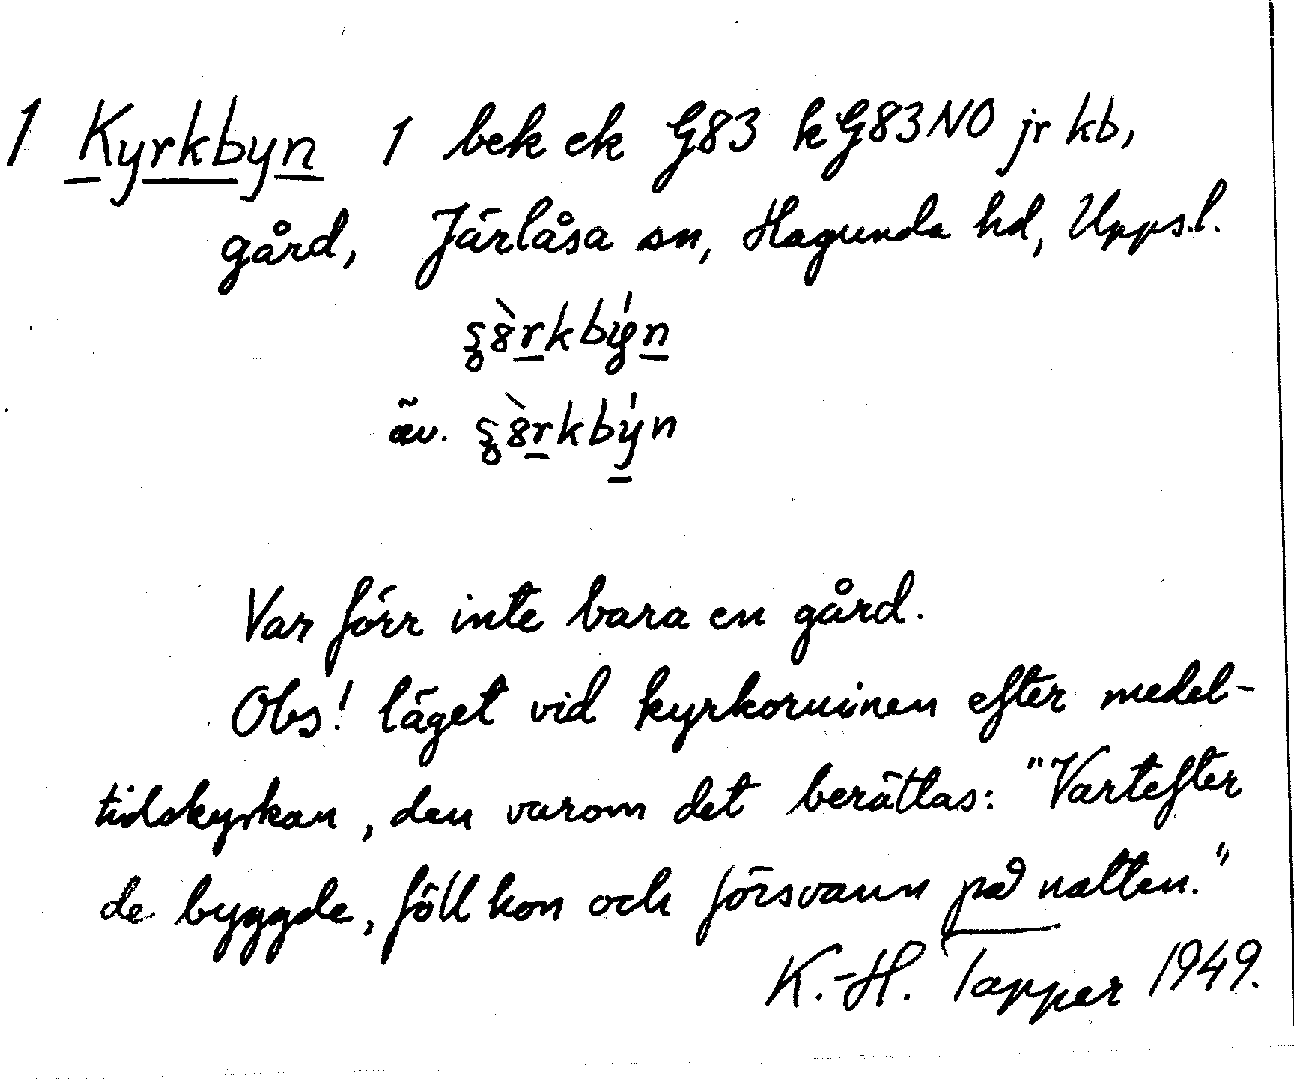 1 Kyrkbyn 1 bek ek G83 k G83NO jr kb,
gård, Järlåsa sn, Hagunda hd, Uppsl.
äv.
Var förr inte bara en gård.
Obs! läget vid kyrkoruinen efter medel-
tidskyrkan, den varom det berättas: "Vartefter
de byggde, föll hon och försvann på natten."
K.-H. Tapper 1949.